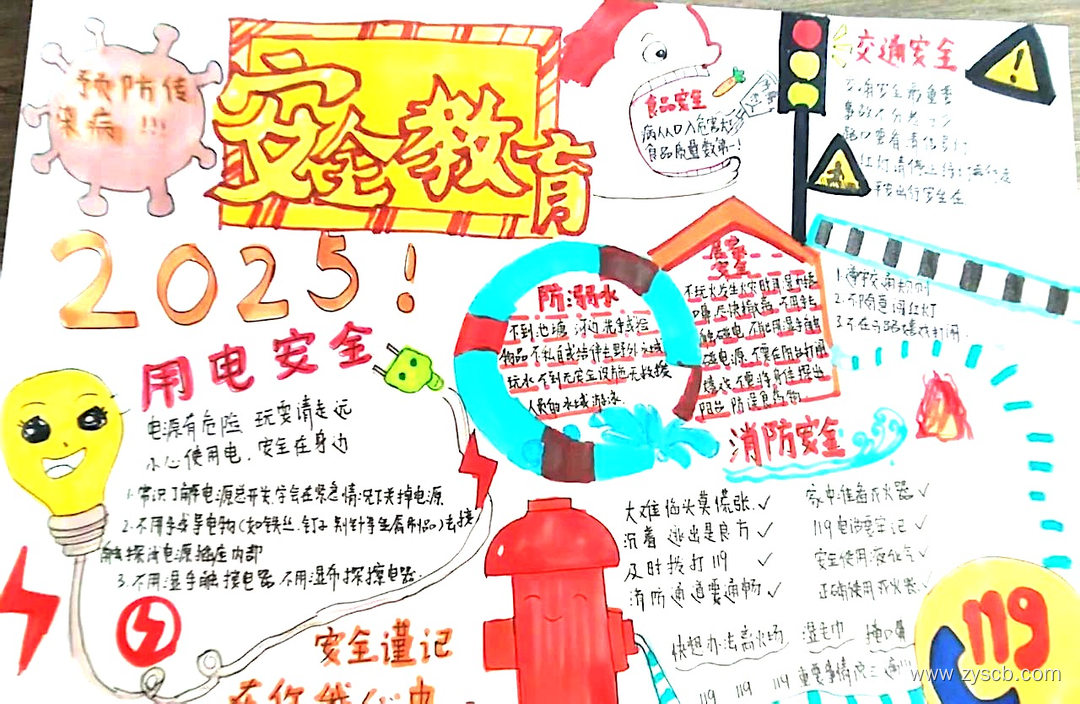 预防传
染病!!!
安全教育
2025!
食品安全
病从口入危害大
食品质量数第一!
交通安全
红灯
1.遵守交通规则
2.不随意闯红灯
3.不在马路嬉戏打闹.
居家
安全
防溺水
不到池塘 河边洗手或捡
物品 不私自或结伴去野外水域
玩水 不到无安全设施无救援
人员的水域游泳.
用电安全
电源有危险 玩耍请走远
小心使用电,安全在身边
1.常识了解电源总开关,学会在紧急情况下关掉电源
2.不用手或导电物(如铁丝.钉子 别针等金属制品)去接
触 探试电源插座内部
3.不用湿手触摸电器 不用湿布擦电器.
消防安全
大难临头莫慌张.✓
沉着 逃出是良方✓
及时拨打119 ✓
消防通道要通畅✓
家中准备灭火器✓
119电话要牢记✓
安全使用液化气✓
正确使用灭火器.
快想办法离火场 湿毛巾 捂口鼻
119 119 119
119
安全谨记
www.zyscb.com